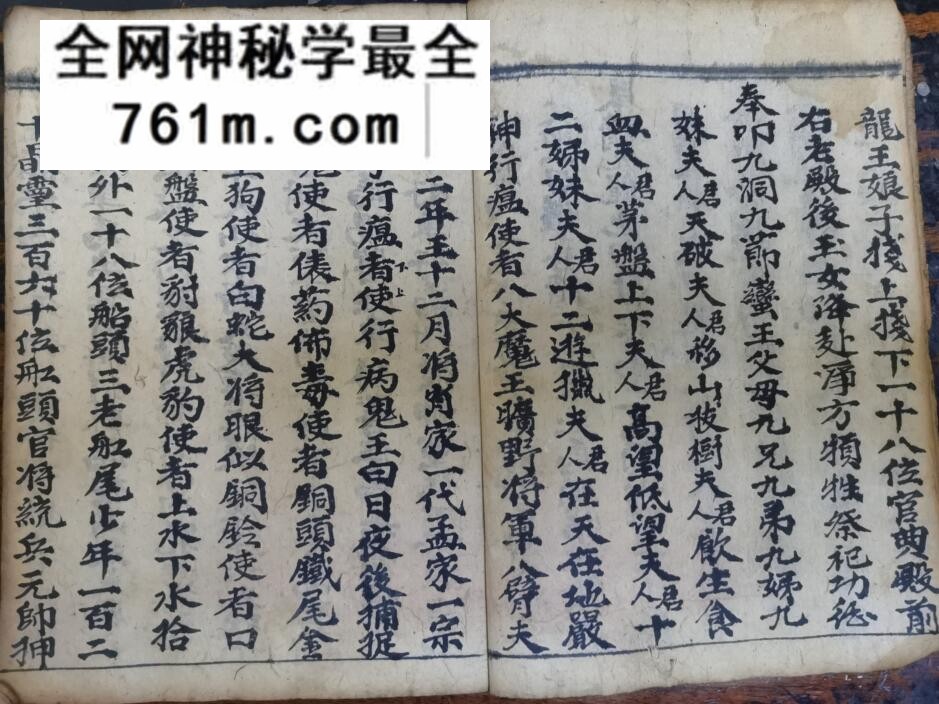 全网神秘学最全
761m.com
龍王娘子 上 下一十八位官典殿前
右老殿後玉女降赴淨方領牲祭祀功德
奉叩九洞九節蠻王父母九兄九弟九姊九
妹夫人君天破夫人君移山拔樹夫人君飲生食
血夫人君茅盤上下夫人君高望低望夫人君十
二姊妹夫人君十二遊獵夫人君在天在地嚴
神行瘟使者八大魔王曠野将軍八臂夫
二年王十二月将肖家一代孟家一宗
行瘟者使下上行病鬼王白日夜後捕捉
使者俵药佈毒使者銅頭鐵尾
狗使者白蛇大将眼似銅鈴使者口
盤使者豺狼虎豹使者上水下水拾
外一十八位船頭三老船尾少年一百二
靈三百六十位船頭官将統兵元帥押